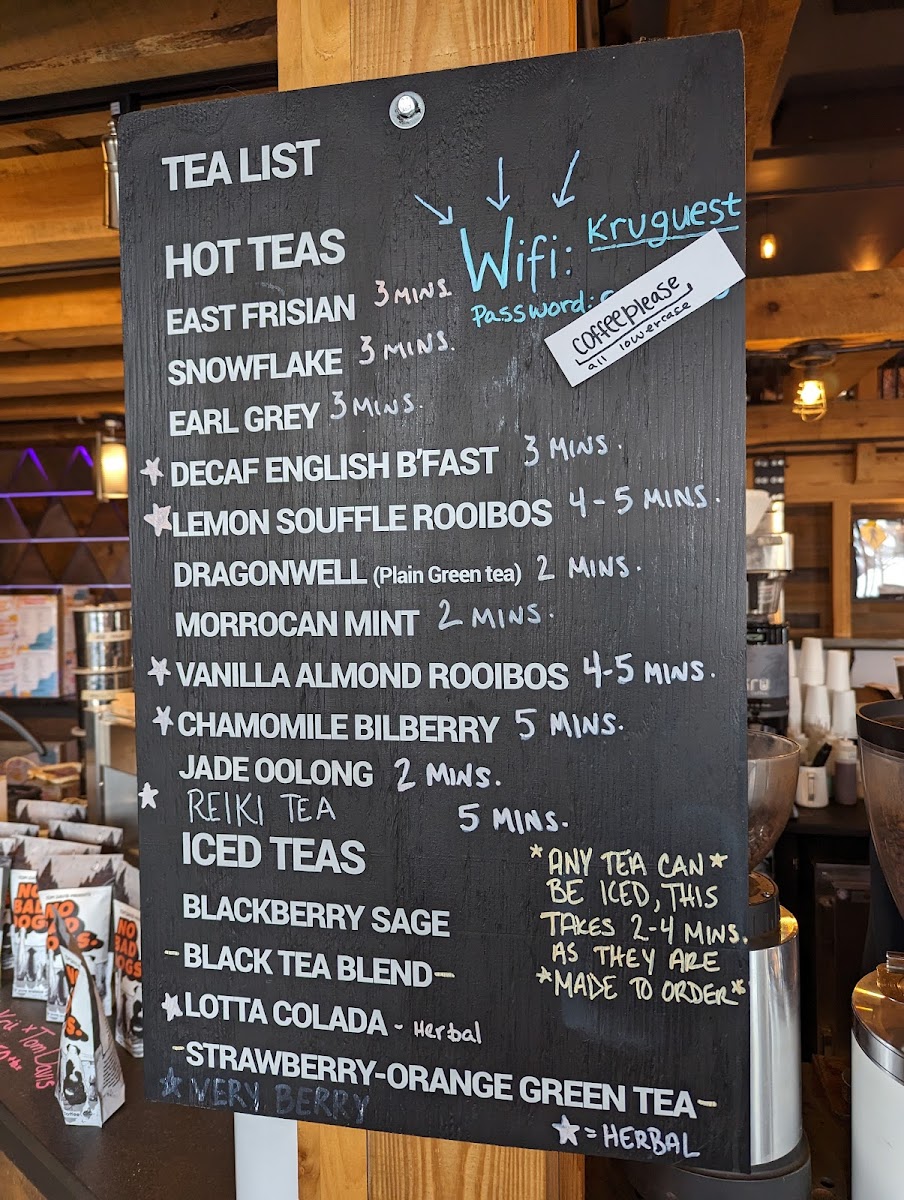 TEA LIST
Wifi: Kruguest
Password:
coffeeplease
all lowercase
HOT TEAS
EAST FRISIAN 3 MINS
SNOWFLAKE 3 MINS.
EARL GREY 3 MINS.
☆ DECAF ENGLISH B'FAST 3 MINS.
☆ LEMON SOUFFLE ROOIBOS 4-5 MINS.
DRAGONWELL (Plain Green tea) 2 MINS.
MORROCAN MINT 2 MINS.
☆ VANILLA ALMOND ROOIBOS 4-5 MINS.
☆ CHAMOMILE BILBERRY 5 MINS.
JADE OOLONG 2 MINS.
☆ REIKI TEA 5 MINS.
ICED TEAS
BLACKBERRY SAGE
- BLACK TEA BLEND -
☆ LOTTA COLADA - Herbal
- STRAWBERRY-ORANGE GREEN TEA -
☆ VERY BERRY
☆ = HERBAL
* ANY TEA CAN *
BE ICED, THIS
TAKES 2-4 MINS.
AS THEY ARE
* MADE TO ORDER *
NO
BAD
DOGS.